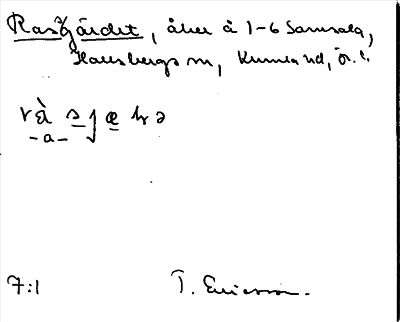 Rasgärdet, åker å 1-6 Samsala,
Hallsbergs sn, Kumla hd, ör. l.
-a-
7:1 T. Ericsson.